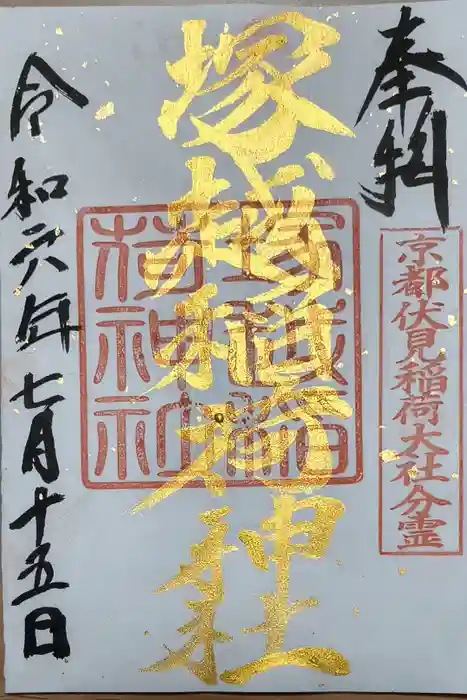 奉拝
京都伏見稲荷大社分霊
塚越稲荷神社
塚越稲荷神社
令和六年七月十五日